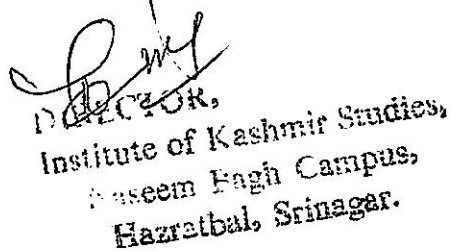 DIRECTOR,
Institute of Kashmir Studies,
Naseem Bagh Campus,
Hazratbal, Srinagar.